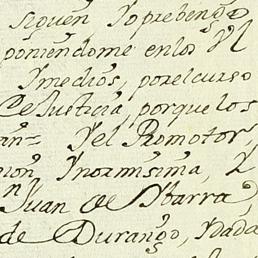 siguen Yo prebengo
poniendome en los
Y medios, por el curso
de Justicia, porque los
an= Y el Promotor,
nion Ynormisima, Y
Juan de Ybarra,
de Durango, Y dada